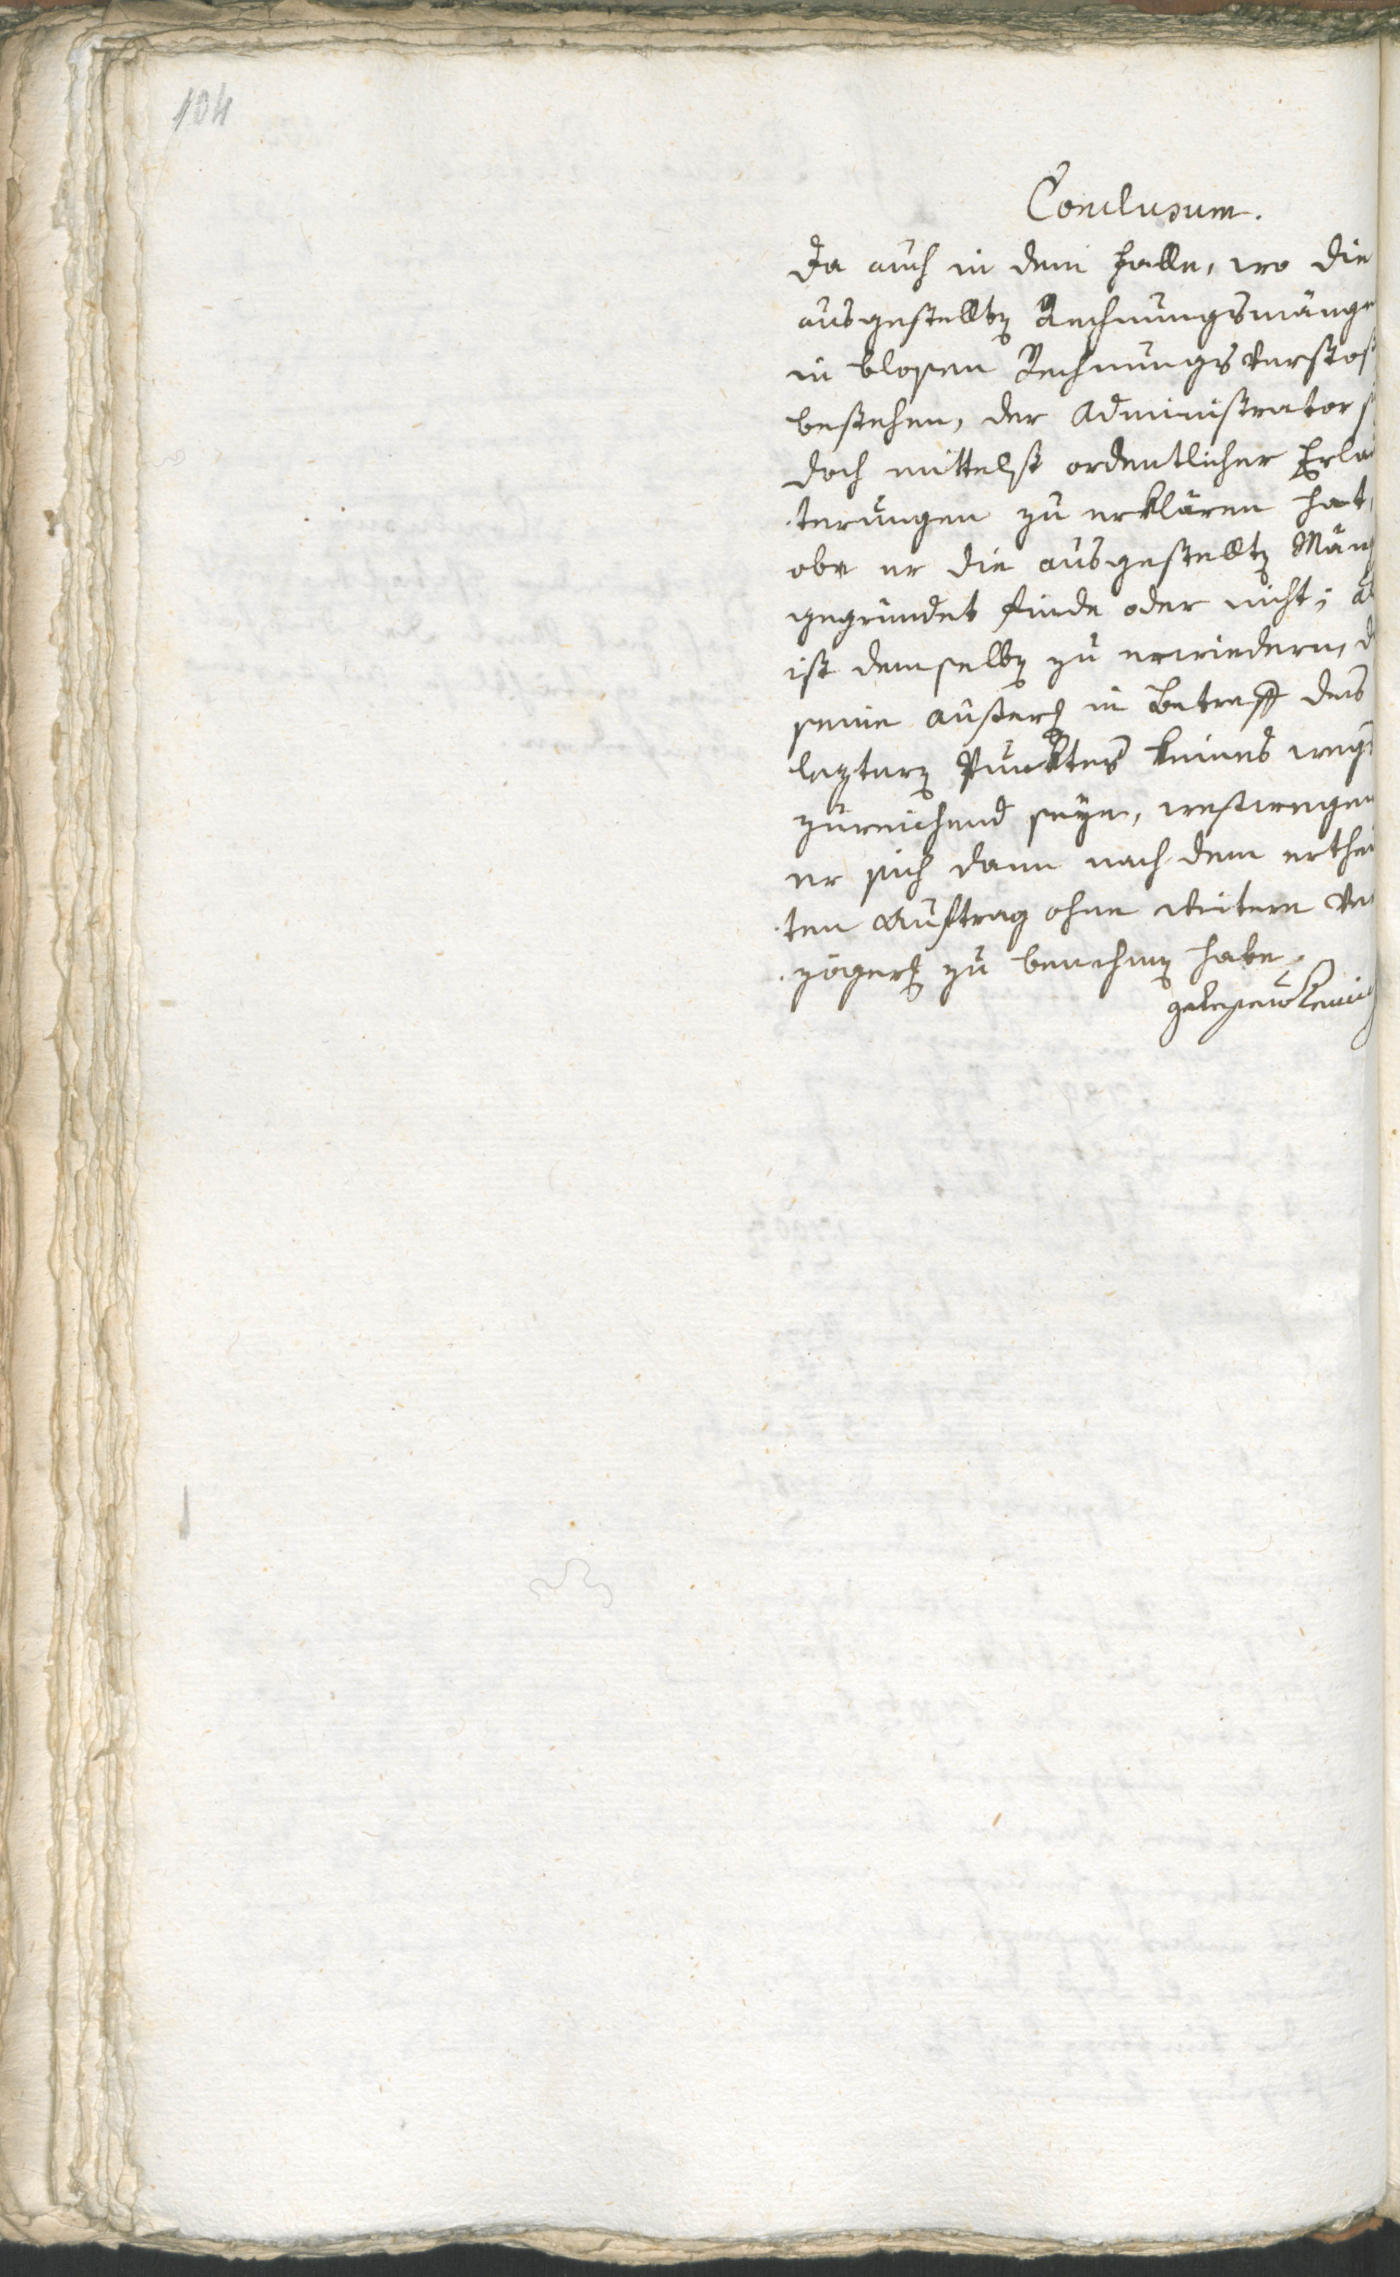 104
Conclusum.
Da auch in dem Falle, wo die
ausgestellten Rechnungsmänge
in blosen Rechnungsverstoß
bestehen, der Administrator s
doch mittelst ordentlicher Erläu
terungen zu erklären hat,
obe er die ausgestellten Mäng
gegründet finde oder nicht; a
ist demselben zu erwiedern, d
seine äußerung in Betreff des
leztern Punktes keines wegs
zureichend seye, westwegen
er sich dann nach dem erthei
ten Auftrag ohne weitere Ver
zögerung zu benehmen habe.